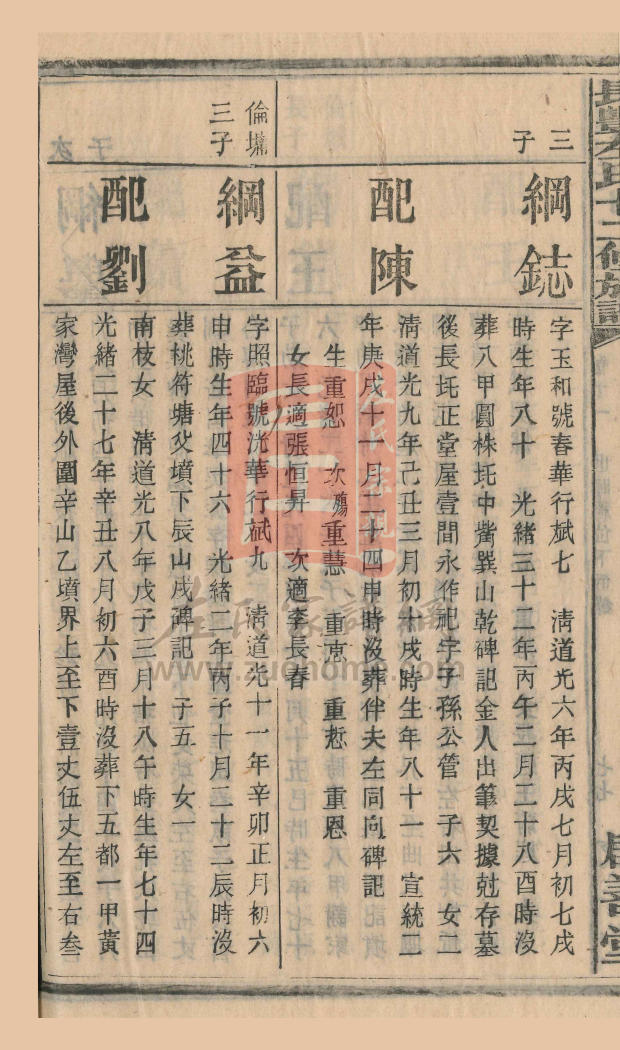 三子
綱鋕
字玉和號春華行斌七　清道光六年丙戌七月初七戌
時生年八十　光緒三十二年丙午二月二十八酉時沒
葬八甲圓株坵中嘴巽山乾碑記金人出筆契據尅存墓
後長坵正堂屋壹間永作祀字子孫公管　子六　女二
配陳
清道光九年己丑三月初十戌時生年八十一　宣統二
年庚戌十一月二十四申時沒葬伴夫左同向碑記
生重恕　次殤重慧　重　重　重恩
女長適張恒昇　次適李長春
倫墉三子
綱益
字照臨號洸華行斌九　清道光十一年辛卯正月初六
申時生年四十六　光緒二年丙子十月二十二辰時沒
葬桃符塘父墳下辰山戌碑記　子五　女一
配劉
南枝女　清道光八年戊子三月十八午時生年七十四
光緒二十七年辛丑八月初六酉時沒葬下五都一甲黃
家灣屋後外圍辛山乙墳界上至下壹丈伍丈左至右叁
左氏家譜網
www.zuohome.com